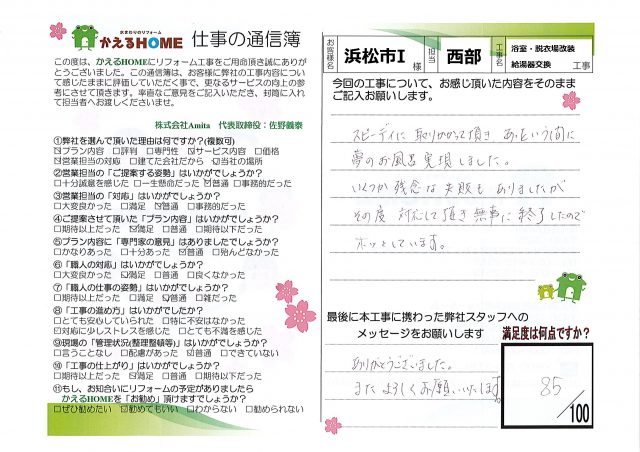 水まわりのリフォーム
かえるHOME 仕事の通信簿
この度は、かえるHOMEにリフォーム工事をご用命頂き誠にありが
とうございました。この通信簿は、お客様に弊社の工事内容につい
て感じたままに評価していただく事で、更なるサービスの向上の参
考にさせて頂きます。率直なご意見をご記入いただき、封筒に入れ
て担当者へお渡しくださいませ。
株式会社Amita 代表取締役:佐野義泰
①弊社を選んで頂いた理由は何ですか?(複数可)
☑プラン内容 □評判 □専門性 ☑サービス内容 □価格
☑営業担当の対応 □建てた会社だから ☑当社の場所
②営業担当の「ご提案する姿勢」はいかがでしょうか?
□十分誠意を感じた □一生懸命だった ☑普通 □事務的だった
③営業担当の「対応」はいかがでしょうか?
□大変良かった □満足 ☑普通 □事務的だった
④ご提案させて頂いた「プラン内容」はいかがでしょうか?
□期待以上だった ☑満足 □普通 □期待以下だった
⑤プラン内容に「専門家の意見」はありましたでしょうか?
□かなりあった □十分あった ☑普通 □殆んどなかった
⑥「職人の対応」はいかがでしょうか?
□大変良かった ☑満足 □普通 □良くなかった
⑦「職人の仕事の姿勢」はいかがでしょうか?
□期待以上だった □満足 ☑普通 □雑だった
⑧「工事の進め方」はいかがでしたか?
□とても安心していられた □特に不安はなかった
☑対応に少しストレスを感じた □とても不満を感じた
⑨現場の「管理状況(整理整頓等)」はいかがでしょうか?
□言うことなし □配慮があった ☑普通 □できていない
⑩「工事の仕上がり」はいかがでしょうか?
□期待以上だった ☑満足 □普通 □期待以下だった
⑪もし、お知合いにリフォームの予定がありましたら
かえるHOMEを「お勧め」頂けますでしょうか?
□ぜひ勧めたい ☑勧めてもいい □わからない □勧められない
お客様名 浜松市I 様 担当 西部 工事名 浴室・脱衣場改装
給湯器交換 工事
今回の工事について、お感じ頂いた内容をそのまま
ご記入お願いします。
スピーディに 取りかかって頂き あっという間に
夢のお風呂 実現しました。
いくつか 残念な 失敗も ありましたが
その度 対応して頂き 無事に 終了したので
ホッとしています。
最後に本工事に携わった弊社スタッフへの
メッセージをお願いします
ありがとうございました。
また よろしくお願いいたします。
満足度は何点ですか?
85
/100